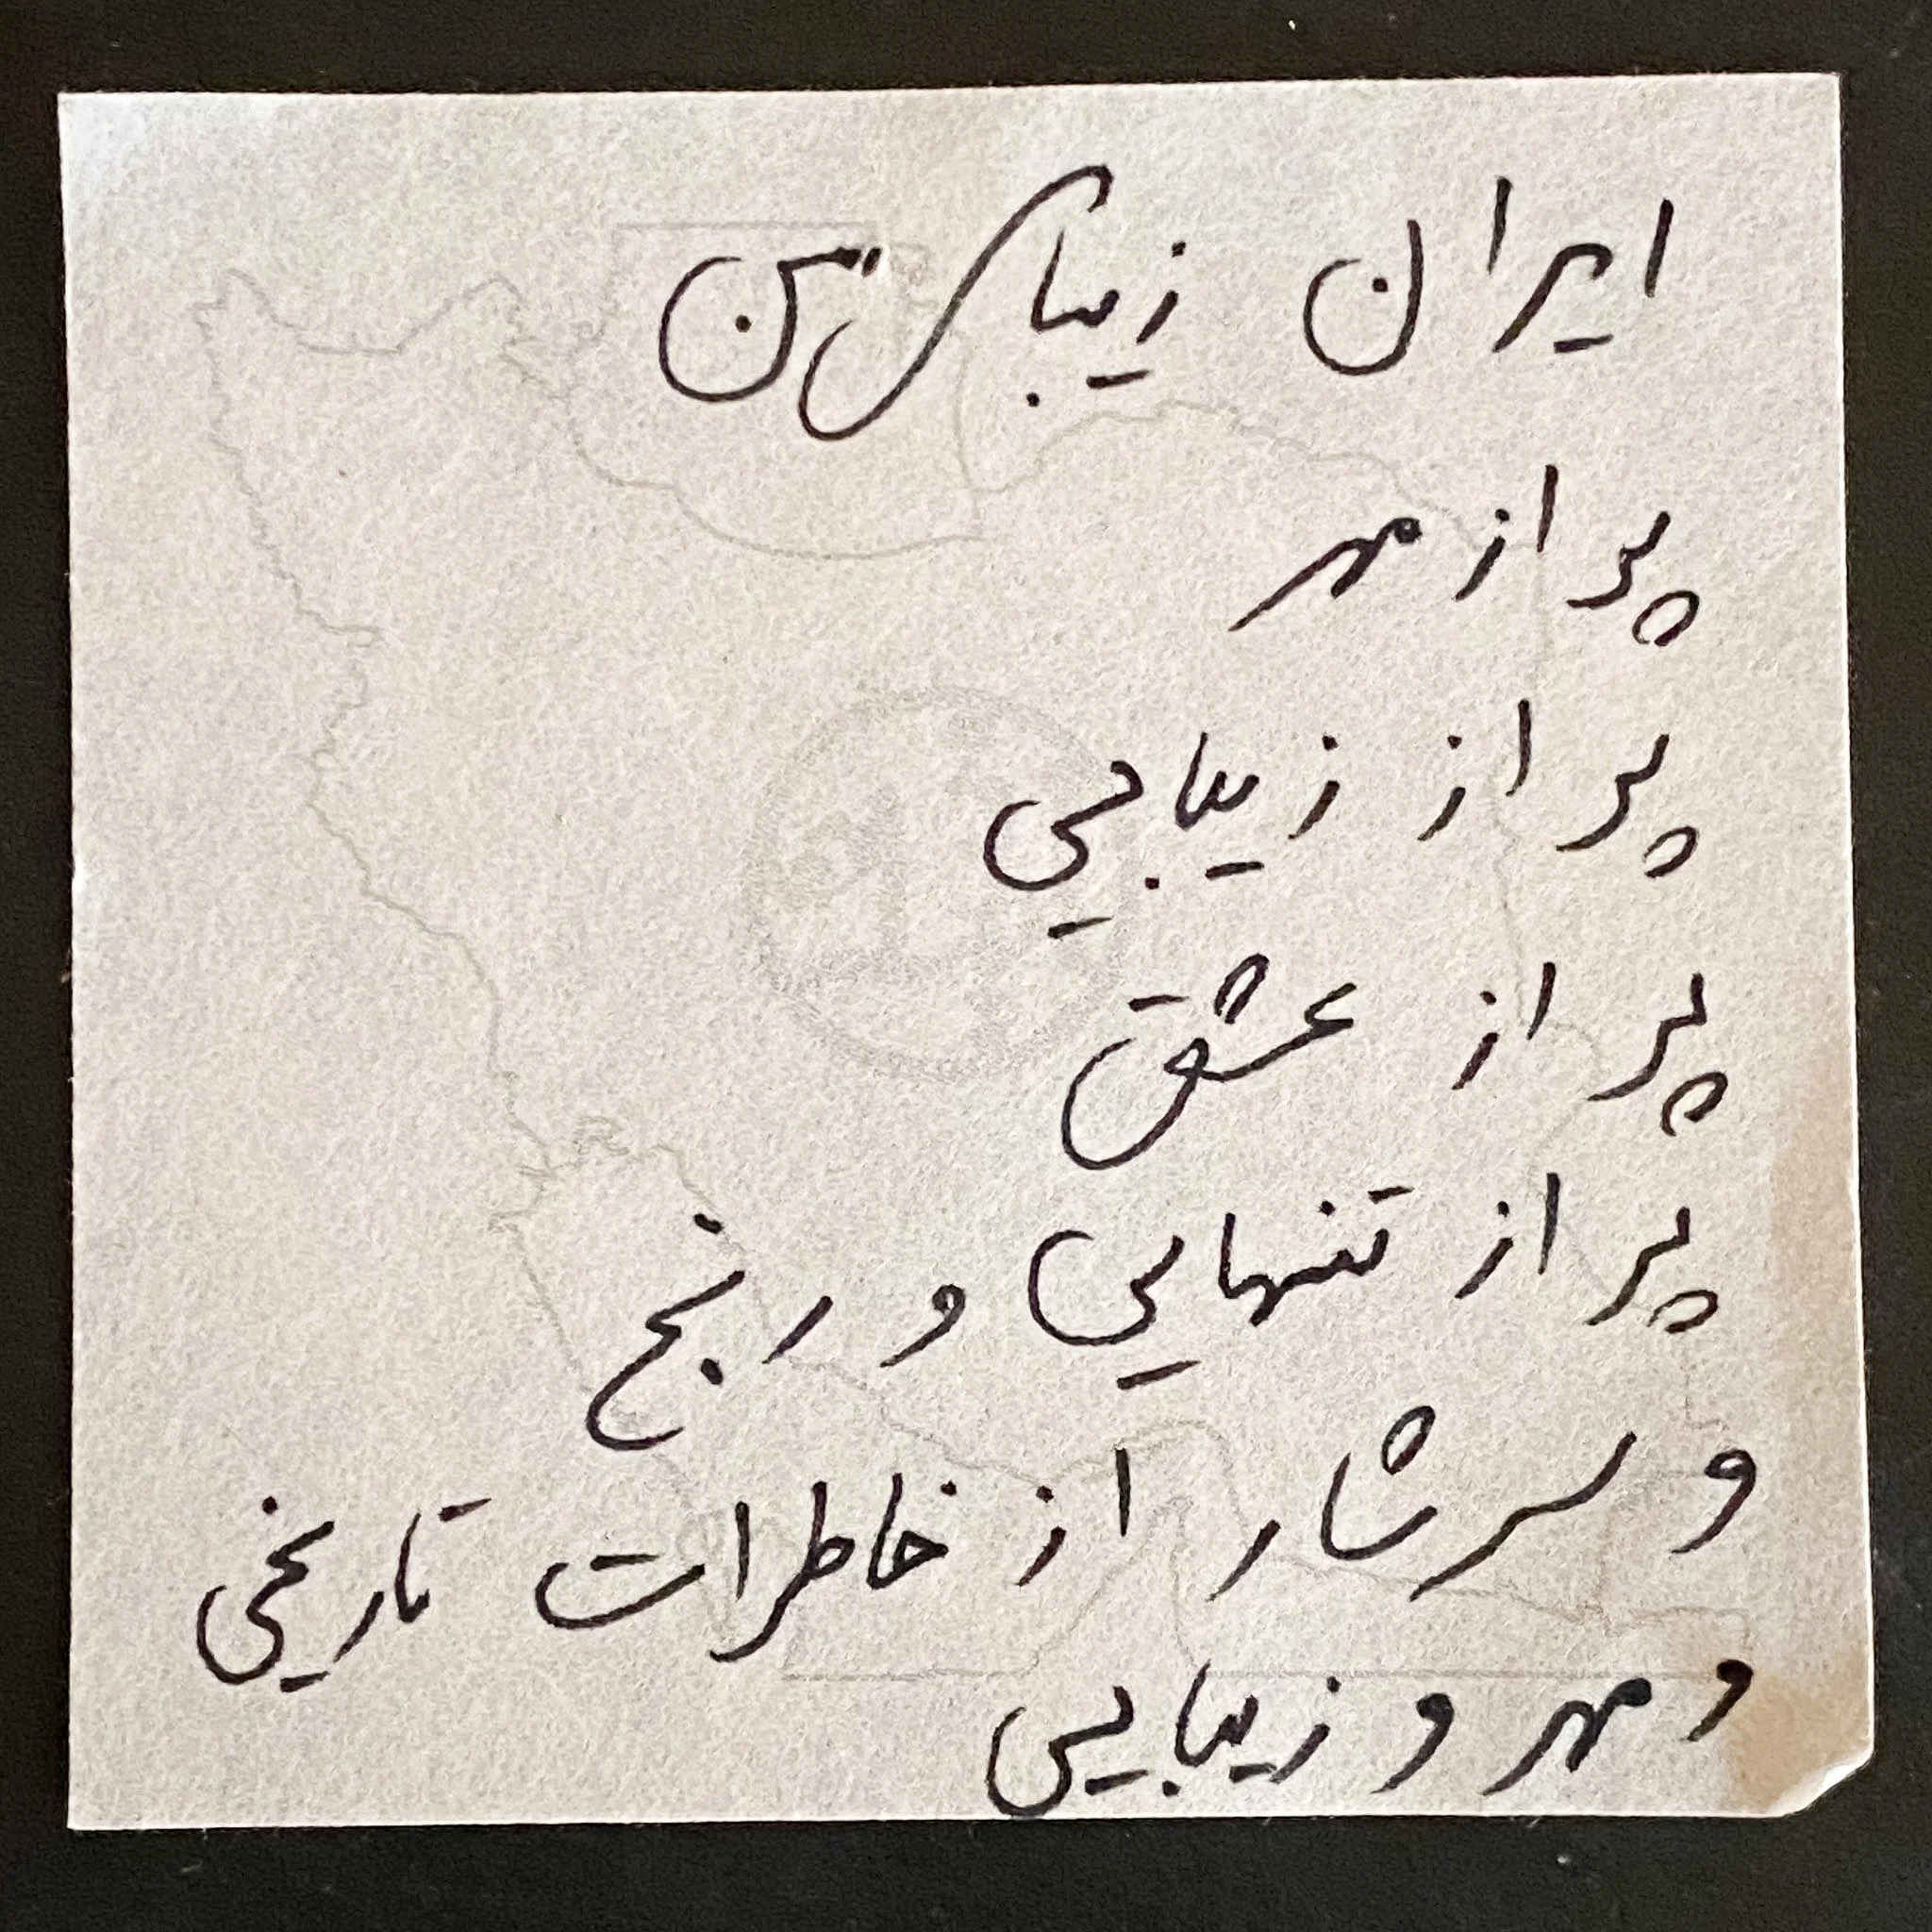 ایران زیبای من
پر از مهر
پر از زیبایی
پر از عشق
پر از تنهایی و رنج
و سرشار از خاطرات تاریخی
و مهر و زیبایی